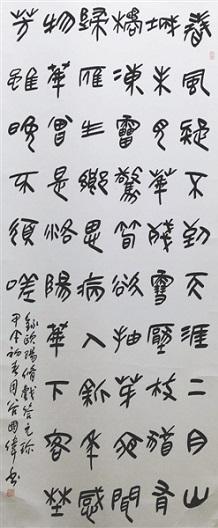 春風疑不到天涯二月山
城未見華殘雪壓枝猶有
橘凍雷驚筍欲抽芽夜聞
歸雁生鄉思病入新年感
物華曾是洛陽華下客埜
芳雖晚不須嗟
錄歐陽脩戲答元珍
甲午初春國偉書